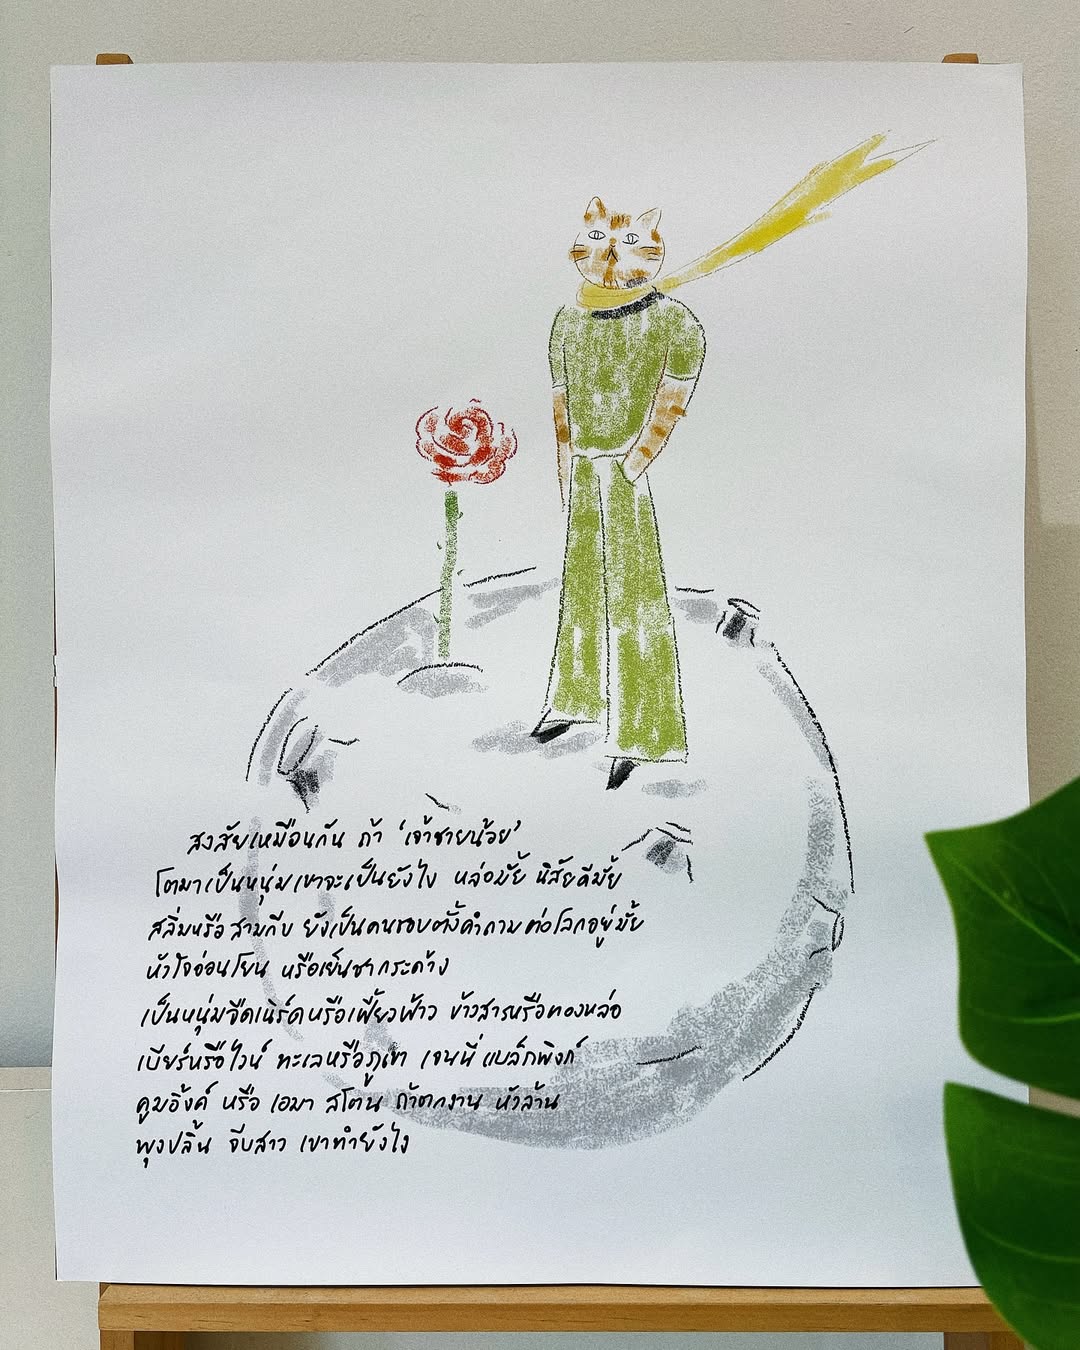 สงสัยเหมือนกัน ถ้า ‘เจ้าชายน้อย’
โตมาเป็นหนุ่ม เขาจะเป็นยังไง หล่อมั้ย นิสัยดีมั้ย
สลิ่มหรือสามกีบ ยังเป็นคนชอบตั้งคำถามต่อโลกอยู่มั้ย
หัวใจอ่อนโยน หรือเย็นชากระด้าง
เป็นหนุ่มจืดเนิร์ดหรือเฟี้ยวฟ้าว ข้าวสารหรือทองหล่อ
เบียร์หรือไวน์ ทะเลหรือภูเขา เจนนี่ แบล็กพิงก์
คูมอิ้งค์ หรือ เอมา สโตน ถ้าตกงาน หัวล้าน
พุงปลิ้น จีบสาว เขาทำยังไง